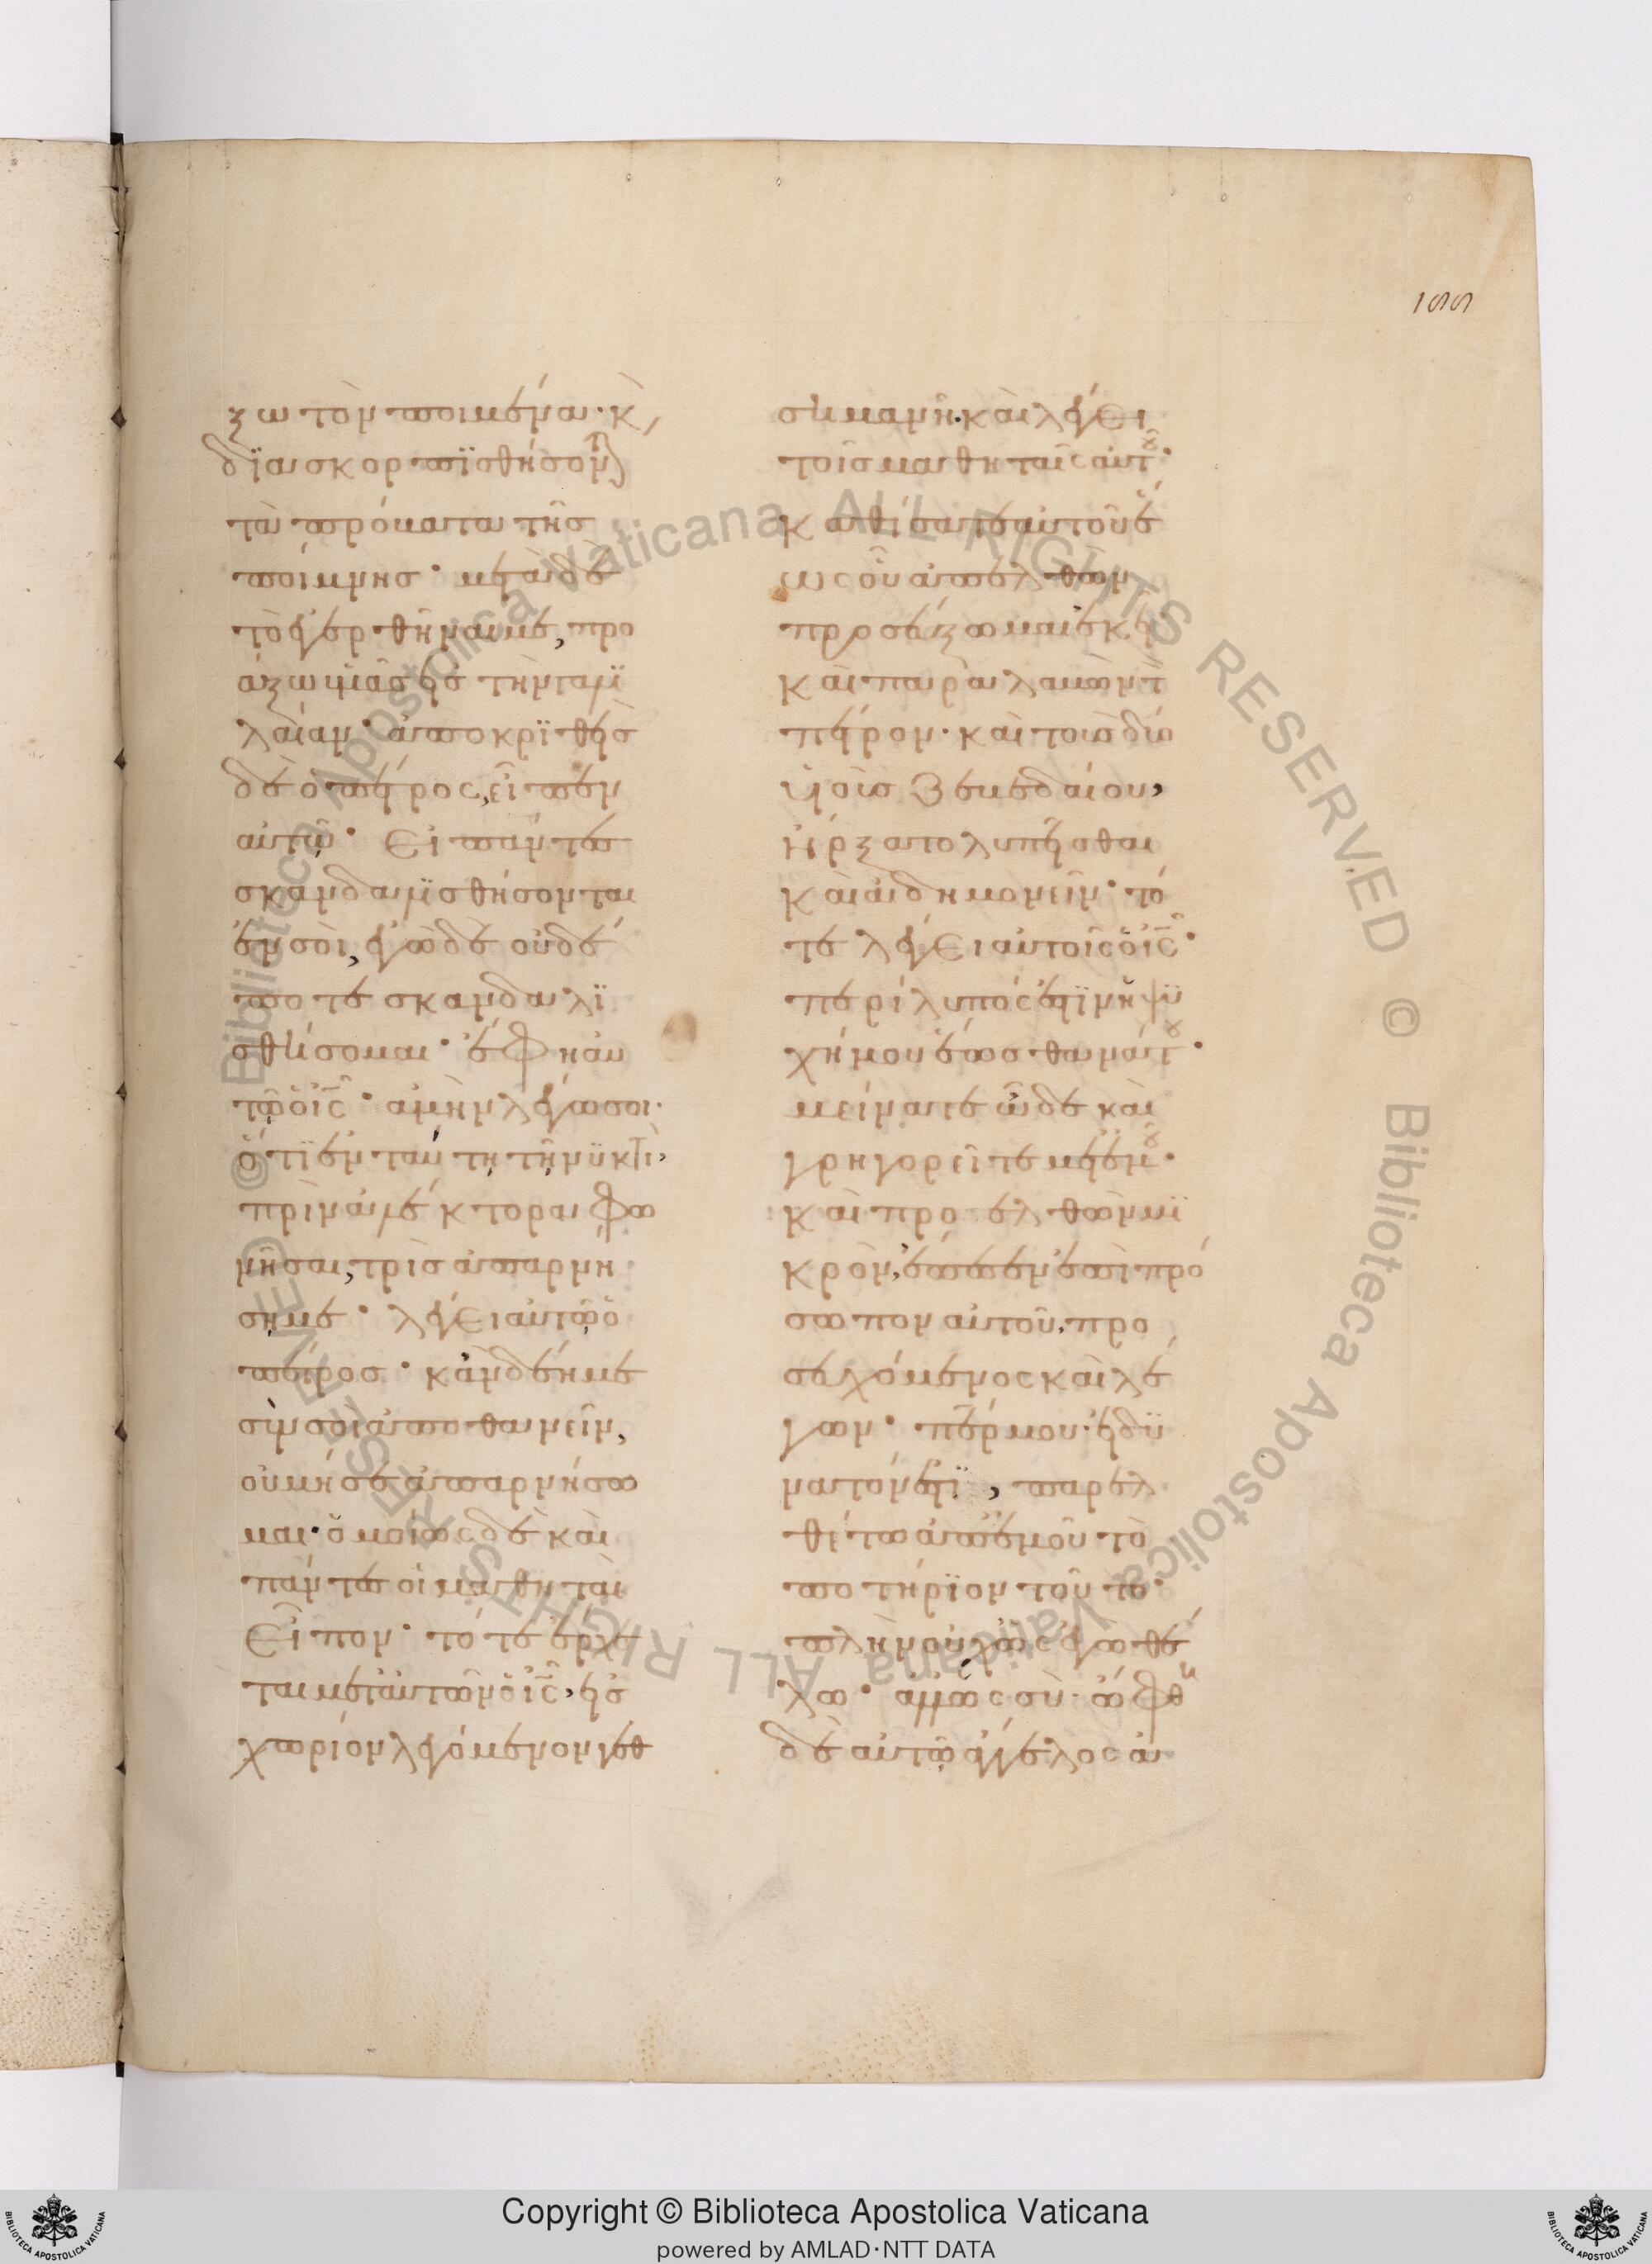 155
ξω τὸν ποιμένα· κ̀
διασκορπϊσθήσον
τὰ πρόβατα τῆς
ποίμνης· μετὰ δὲ
τὸ ἐγερθῆναι με, προ
άξω ὑμᾶς εἰς τὴν γαλι
λαίαν· ἀποκριθεὶς
δὲ ὁ πέτρος, εἶπεν
αὐτῷ· Εἰ πάντες
σκανδαλϊσθήσονται
ἐν σοὶ, ἐγὼ δὲ οὐδέ
ποτε σκανδαλϊ
σθήσομαι· ἔφη αὐ
τῷ ὁ ις̅· ἀμὴν λέγω σοι·
ὅτϊ ἐν ταύτῃ τῇ νϋκτὶ,
πρὶν ἀλέκτορα φω
νῆσαι, τρὶς ἀπαρνή
σῃ με· λέγει αὐτῷ ὁ
πέτρος· κἂν δέη με
σὺν σοὶ ἀποθανεῖν,
οὐ μή σε ἀπαρνήσω
μαι· ὁμοίως δὲ καὶ
πάντες οἱ μαθηταὶ
Εἶπον· τότε ἔρχε
ται μετ' αὐτῶν ὁ ις̅, εἰς
χωρίον λεγόμενον γεθ
σημανῆ· καὶ λέγει
τοῖς μαθηταῖς αὐτȣ͂·
καθίσατε αὐτοῦ ἕ
ως οὗ ἀπελθὼν
προσεύξωμαι ἐκεῖ·
καὶ παραλαβὼν τ
πέτρον· καὶ τοὺς δύο
υἱοὺς Ζεβεδαίου,
ἤρξατο λυπεῖσθαι
καὶ ἀδημονεῖν· τό
τε λέγει αὐτοῖς ὁ ις̅·
περίλυπός ἐστϊν ἡ ψϋ
χή μου ἕως θανάτȣ·
μείνατε ὧδε καὶ
γρηγορεῖτε μετ' ἐμȣ͂·
καὶ προελθὼν μϊ
κρὸν, ἔπεσεν ἐπὶ πρό
σωπον αὐτοῦ, προ
σευχόμενος καὶ λέ
γων· πε̅ρ μου· εἰ δϋ
νατόν ἐστϊ, παρελ
θέτω ἀπ' ἐμοῦ τὸ
ποτήρϊον τοῦτο·
πλὴν οὐχ ὡς ἐγὼ θέ
λω· ἀλλ' ὡς σὺ· ὤφθη
δὲ αὐτῷ ἄγγελος ἀ
Copyright © Biblioteca Apostolica Vaticana
powered by AMLAD·NTT DATA
© Biblioteca Apostolica Vaticana ALL RIGHTS RESERVED © Biblioteca Apostolica Vaticana ALL RIGHTS RESERVED
BIBLIOTECA APOSTOLICA VATICANA
BIBLIOTECA APOSTOLICA VATICANA